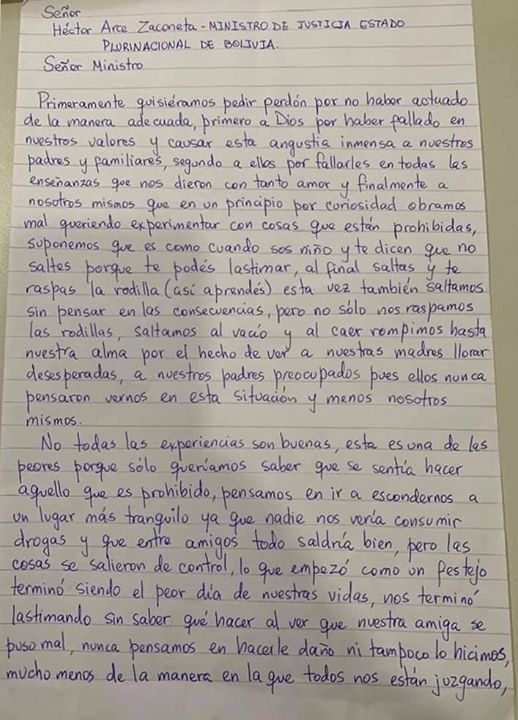 Señor
Héctor Arce Zaconeta - MINISTRO DE JUSTICIA ESTADO
PLURINACIONAL DE BOLIVIA.
Señor Ministro
Primeramente quisiéramos pedir perdón por no haber actuado
de la manera adecuada, primero a Dios por haber fallado en
nuestros valores y causar esta angustia inmensa a nuestros
padres y familiares, segundo a ellos por fallarles en todas las
enseñanzas que nos dieron con tanto amor y finalmente a
nosotros mismos que en un principio por curiosidad obramos
mal queriendo experimentar con cosas que están prohibidas,
suponemos que es como cuando sos niño y te dicen que no
saltes porque te podés lastimar, al final saltas y te
raspas la rodilla (así aprendés) esta vez también saltamos
sin pensar en las consecuencias, pero no sólo nos raspamos
las rodillas, saltamos al vacío y al caer rompimos hasta
nuestra alma por el hecho de ver a nuestras madres llorar
desesperadas, a nuestros padres preocupados pues ellos nunca
pensaron vernos en esta situación y menos nosotros
mismos.
No todas las experiencias son buenas, esta es una de las
peores porque sólo queríamos saber que se sentía hacer
aquello que es prohibido, pensamos en ir a escondernos a
un lugar más tranquilo ya que nadie nos vería consumir
drogas y que entre amigos todo saldría bien, pero las
cosas se salieron de control, lo que empezó como un festejo
terminó siendo el peor día de nuestras vidas, nos terminó
lastimando sin saber qué hacer al ver que nuestra amiga se
puso mal, nunca pensamos en hacerle daño ni tampoco lo hicimos,
mucho menos de la manera en la que todos nos están juzgando,